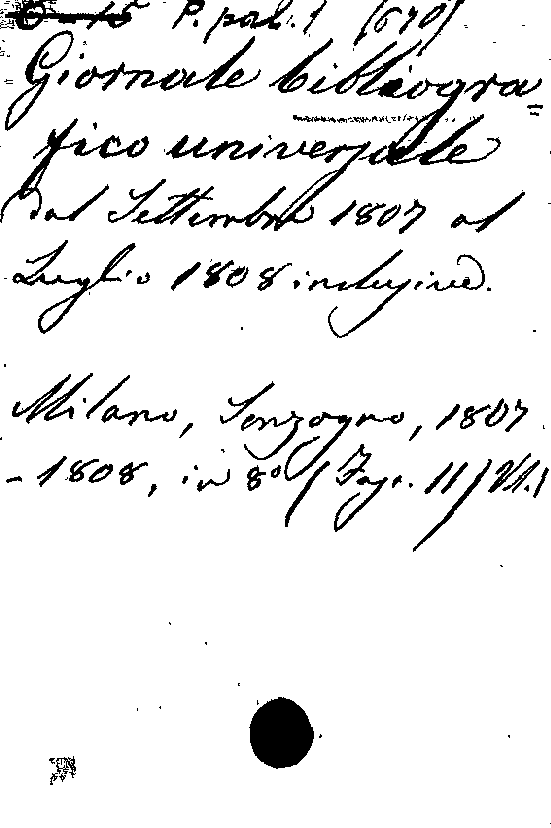 P. pal. 1 (670)
Giornale bibliogra=
fico universale
dal Settembre 1807 al
Luglio 1808 inclusive.
Milano, Sonzogno, 1807
- 1808, in 8º (Fasc. 11)